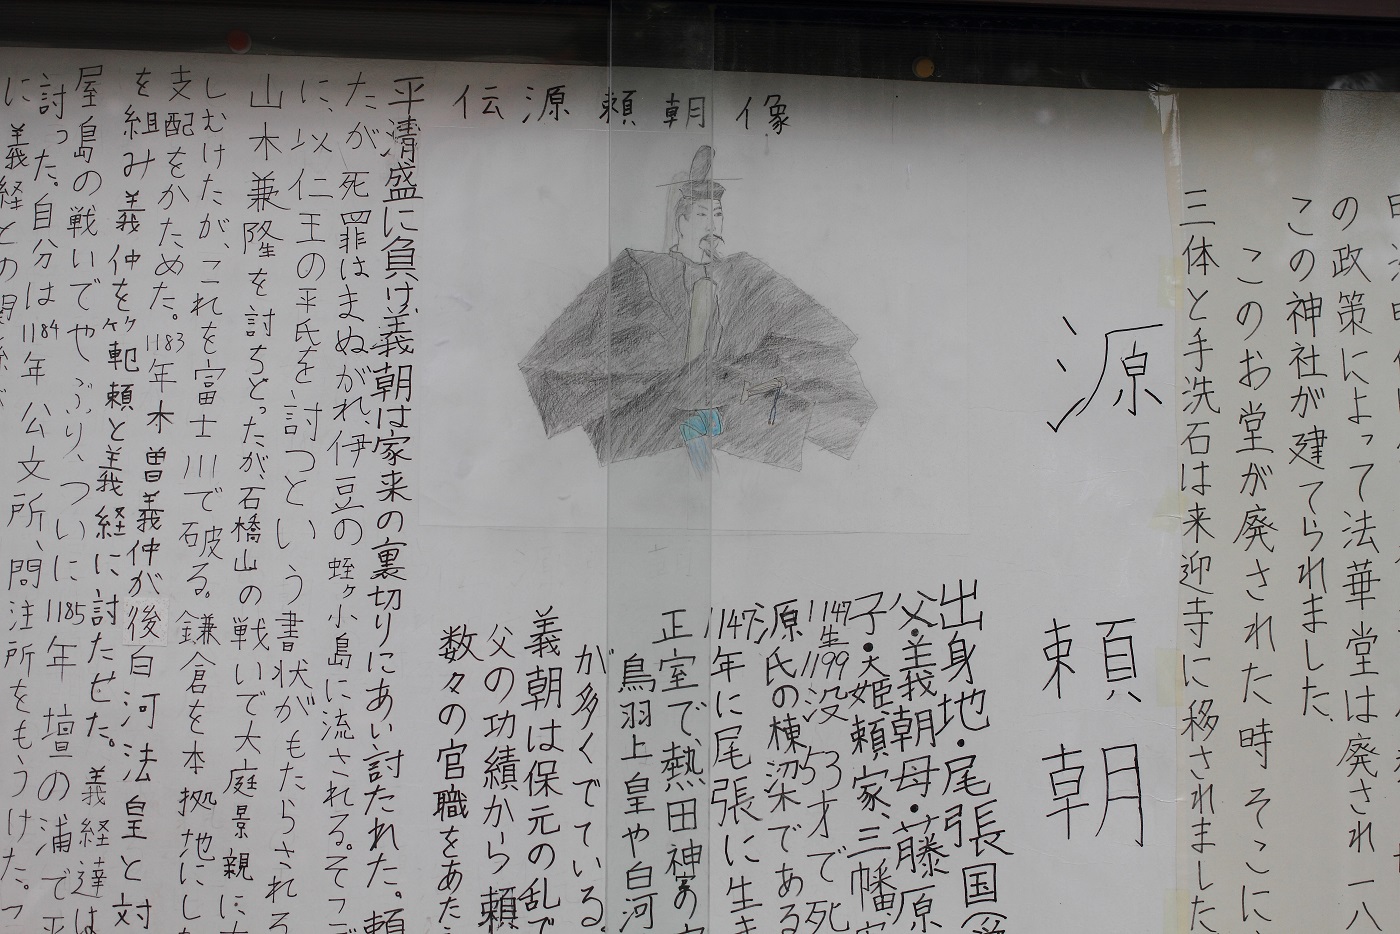 の政策によって法華堂は廃され一八
この神社が建てられました。
このお堂が廃された時そこに
三体と手洗石は来迎寺に移されました
源頼朝
伝源頼朝像
出身地・尾張国(愛
父・義朝母・藤原
子・大姫、頼家、三幡、
1147生1199没 53才で死
源氏の棟梁である
1147年に尾張に生ま
正室で、熱田神宮の
鳥羽上皇や白河
が多くでている。
義朝は保元の乱で
父の功績から頼
数々の官職をあた
平清盛に負け義朝は家来の裏切りにあい討たれた。頼
たが死罪はまぬがれ、伊豆の蛭ヶ小島に流される。そこで
に、以仁王の平氏を討つという書状がもたらされる
山木兼隆を討ちとったが、石橋山の戦いで大庭景親に
しむけたが、これを富士川で破る。鎌倉を本拠地にし
支配をかためた。1183年木曽義仲が後白河法皇と対
を組み義仲を範頼と義経に討たせた。義経達は
屋島の戦いでやぶり、ついに1185年壇の浦で平
討った。自分は1184年公文所、問注所をもうけた。
に義経との関係が